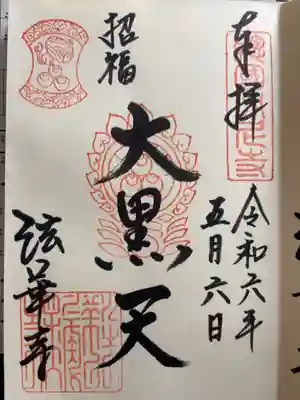 奉拝
令和六年
五月六日
招福
大黒天
法華寺